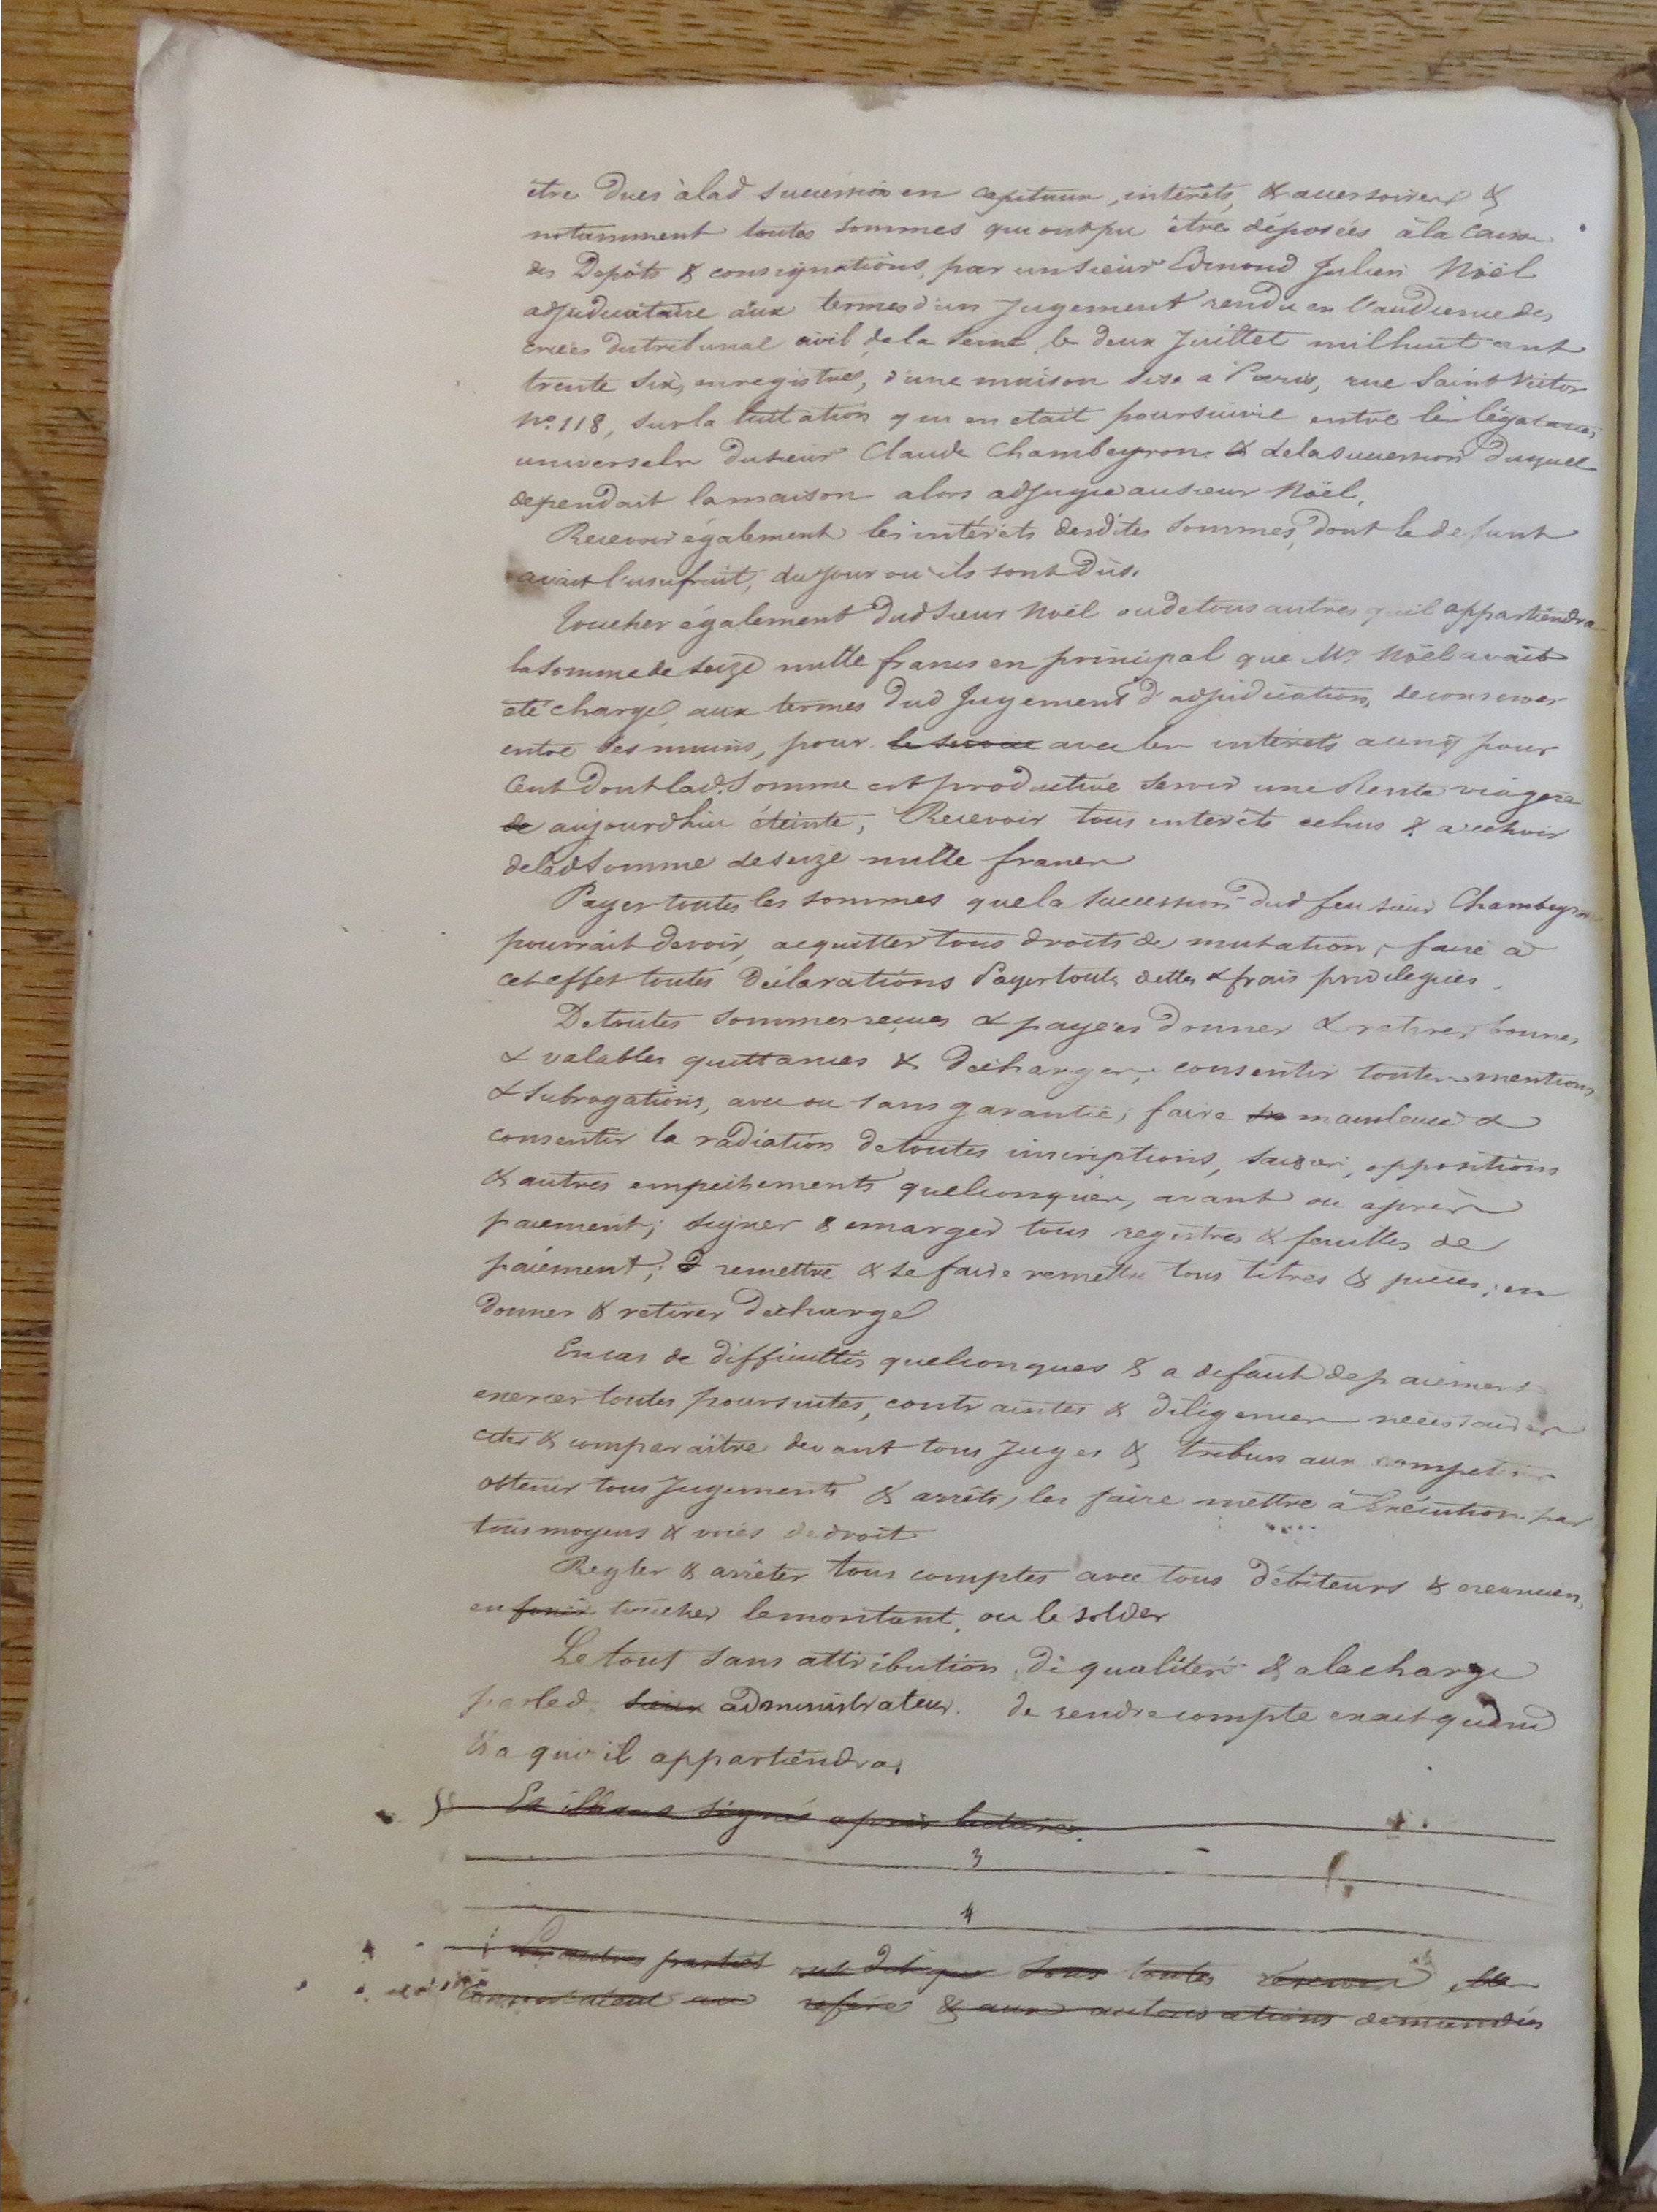 être dues à lad. succession en capitaux, intérêts, & accessoires &
notamment toutes sommes qui ont pu être déposées à la Caisse
des Dépôts & consignations, par un sieur Edmond Julien Noël
adjudicataire aux termes d'un Jugement rendu en l'audience des
criées du tribunal civil de la Seine le deux Juillet mil huit cent
trente six, enregistré, d'une maison sise à Paris, rue Saint Victor
No. 118, sur la licitation qui en était poursuivie entre les légataires
universels du sieur Claude Chambeyron & de la succession duquel
dépendait la maison alors adjugée au sieur Noël,
Recevoir également les intérêts desdites sommes, dont le defunt
avait l'usufruit, du jour où ils sont dûs.
Toucher également dud. Sieur Noël ou de tous autres qu'il appartiendra
la somme de seize mille francs en principal que Mr Noël avait
été chargé, aux termes dud. Jugement d'adjudication, de conserver
entre ses mains, pour le service avec les intérêts a cinq pour
Cent dont lad. Somme est productive servir une Rente viagère
de aujourdhui éteinte, Recevoir tous intérêts echus & a echoir
de lad. Somme de seize mille francs
Payer toutes les sommes que la succession dud. feu sieur Chambeyron
pourrait devoir, acquitter tous droits de mutation, faire a
cet effet toutes Déclarations Payer toutes dettes & frais privilegiés.
De toutes sommes reçues & payées donner & retirer bonnes
& valables quittances & Décharges, consentir toutes mentions
& subrogations, avec ou sans garantie; faire mainlevée &
consentir la radiation de toutes inscriptions, saisies, oppositions
& autres empechements quelconques, avant ou après
paiement; signer & emarger tous registres & feuilles de
paiement; remettre & se faire remettre tous titres & pièces; en
donner & retirer décharge
En cas de difficultés quelconques & a defaut de paiement
exercer toutes poursuites, contraintes & diligences nécessaires
citer & comparaître devant tous Juges & tribunaux competens
obtenir tous Jugements & arrêts, les faire mettre à Exécution par
tous moyens & voies de droit
Regler & arrêter tous comptes avec tous Débiteurs & creanciers,
en toucher le montant, ou le solder
Le tout sans attribution de qualités & a la charge
par led. sieur administrateur de rendre compte exact quand
& a qui il appartiendra.
Et ils ont signé après lecture.
3
4
Les autres parties ont dit que sous toutes réserves elles
consentaient au référé & aux autorisations demandées